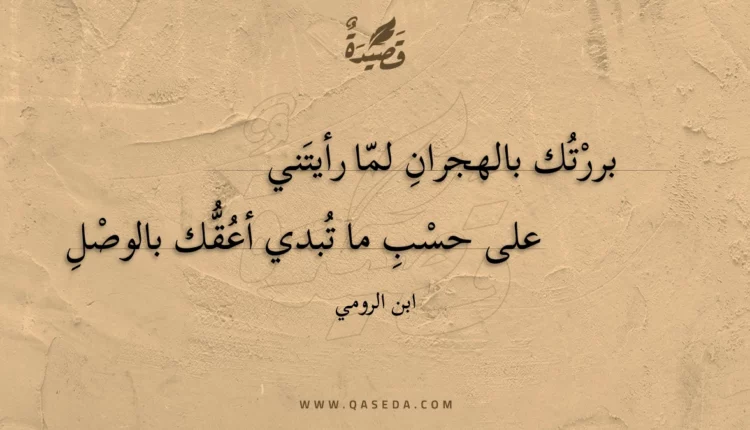 قَصِيْدَةٌ
بررْتُك بالهجرانِ لمّا رأيتَني
على حسْبِ ما تُبدي أعُقُّك بالوصْلِ
ابن الرومي
WWW.QASEDA.COM